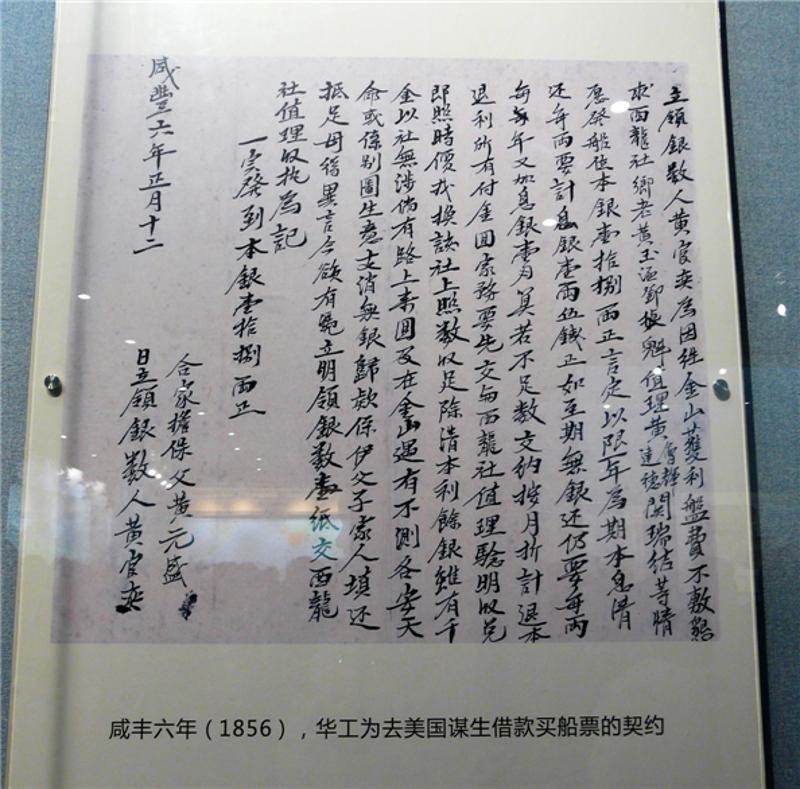 立領銀數人黃官奕為因往金山獲利盤費不敷懇
求西龍社鄉老黃玉涵鄧捷魁值理黃會輝達德關瑞结等情
愿發船位本銀壹拾捌両正言定以限年為期本息清
还每両要計息銀壹両伍錢正如至期無銀还仍要每両
每年又加息銀壹円算若不足數交納按月折計退本
退利所有付金回家務要先交与西龍社值理騐明收兑
即照時價找換該社上照數収足除清本利餘銀雖有千
金以社無涉倘有路上来回及在金山遇有不測各安天
命或係别圖生意支消無銀歸款保伊父子家人填还
抵足毋得異言今欲有凭立明領銀數壹紙交西龍
社值理収执為記
一实發到本銀壹拾捌両正
合家擔保父黃元盛
咸豐六年正月十二
日立領銀數人黃官奕
咸丰六年（1856），华工为去美国谋生借款买船票的契约